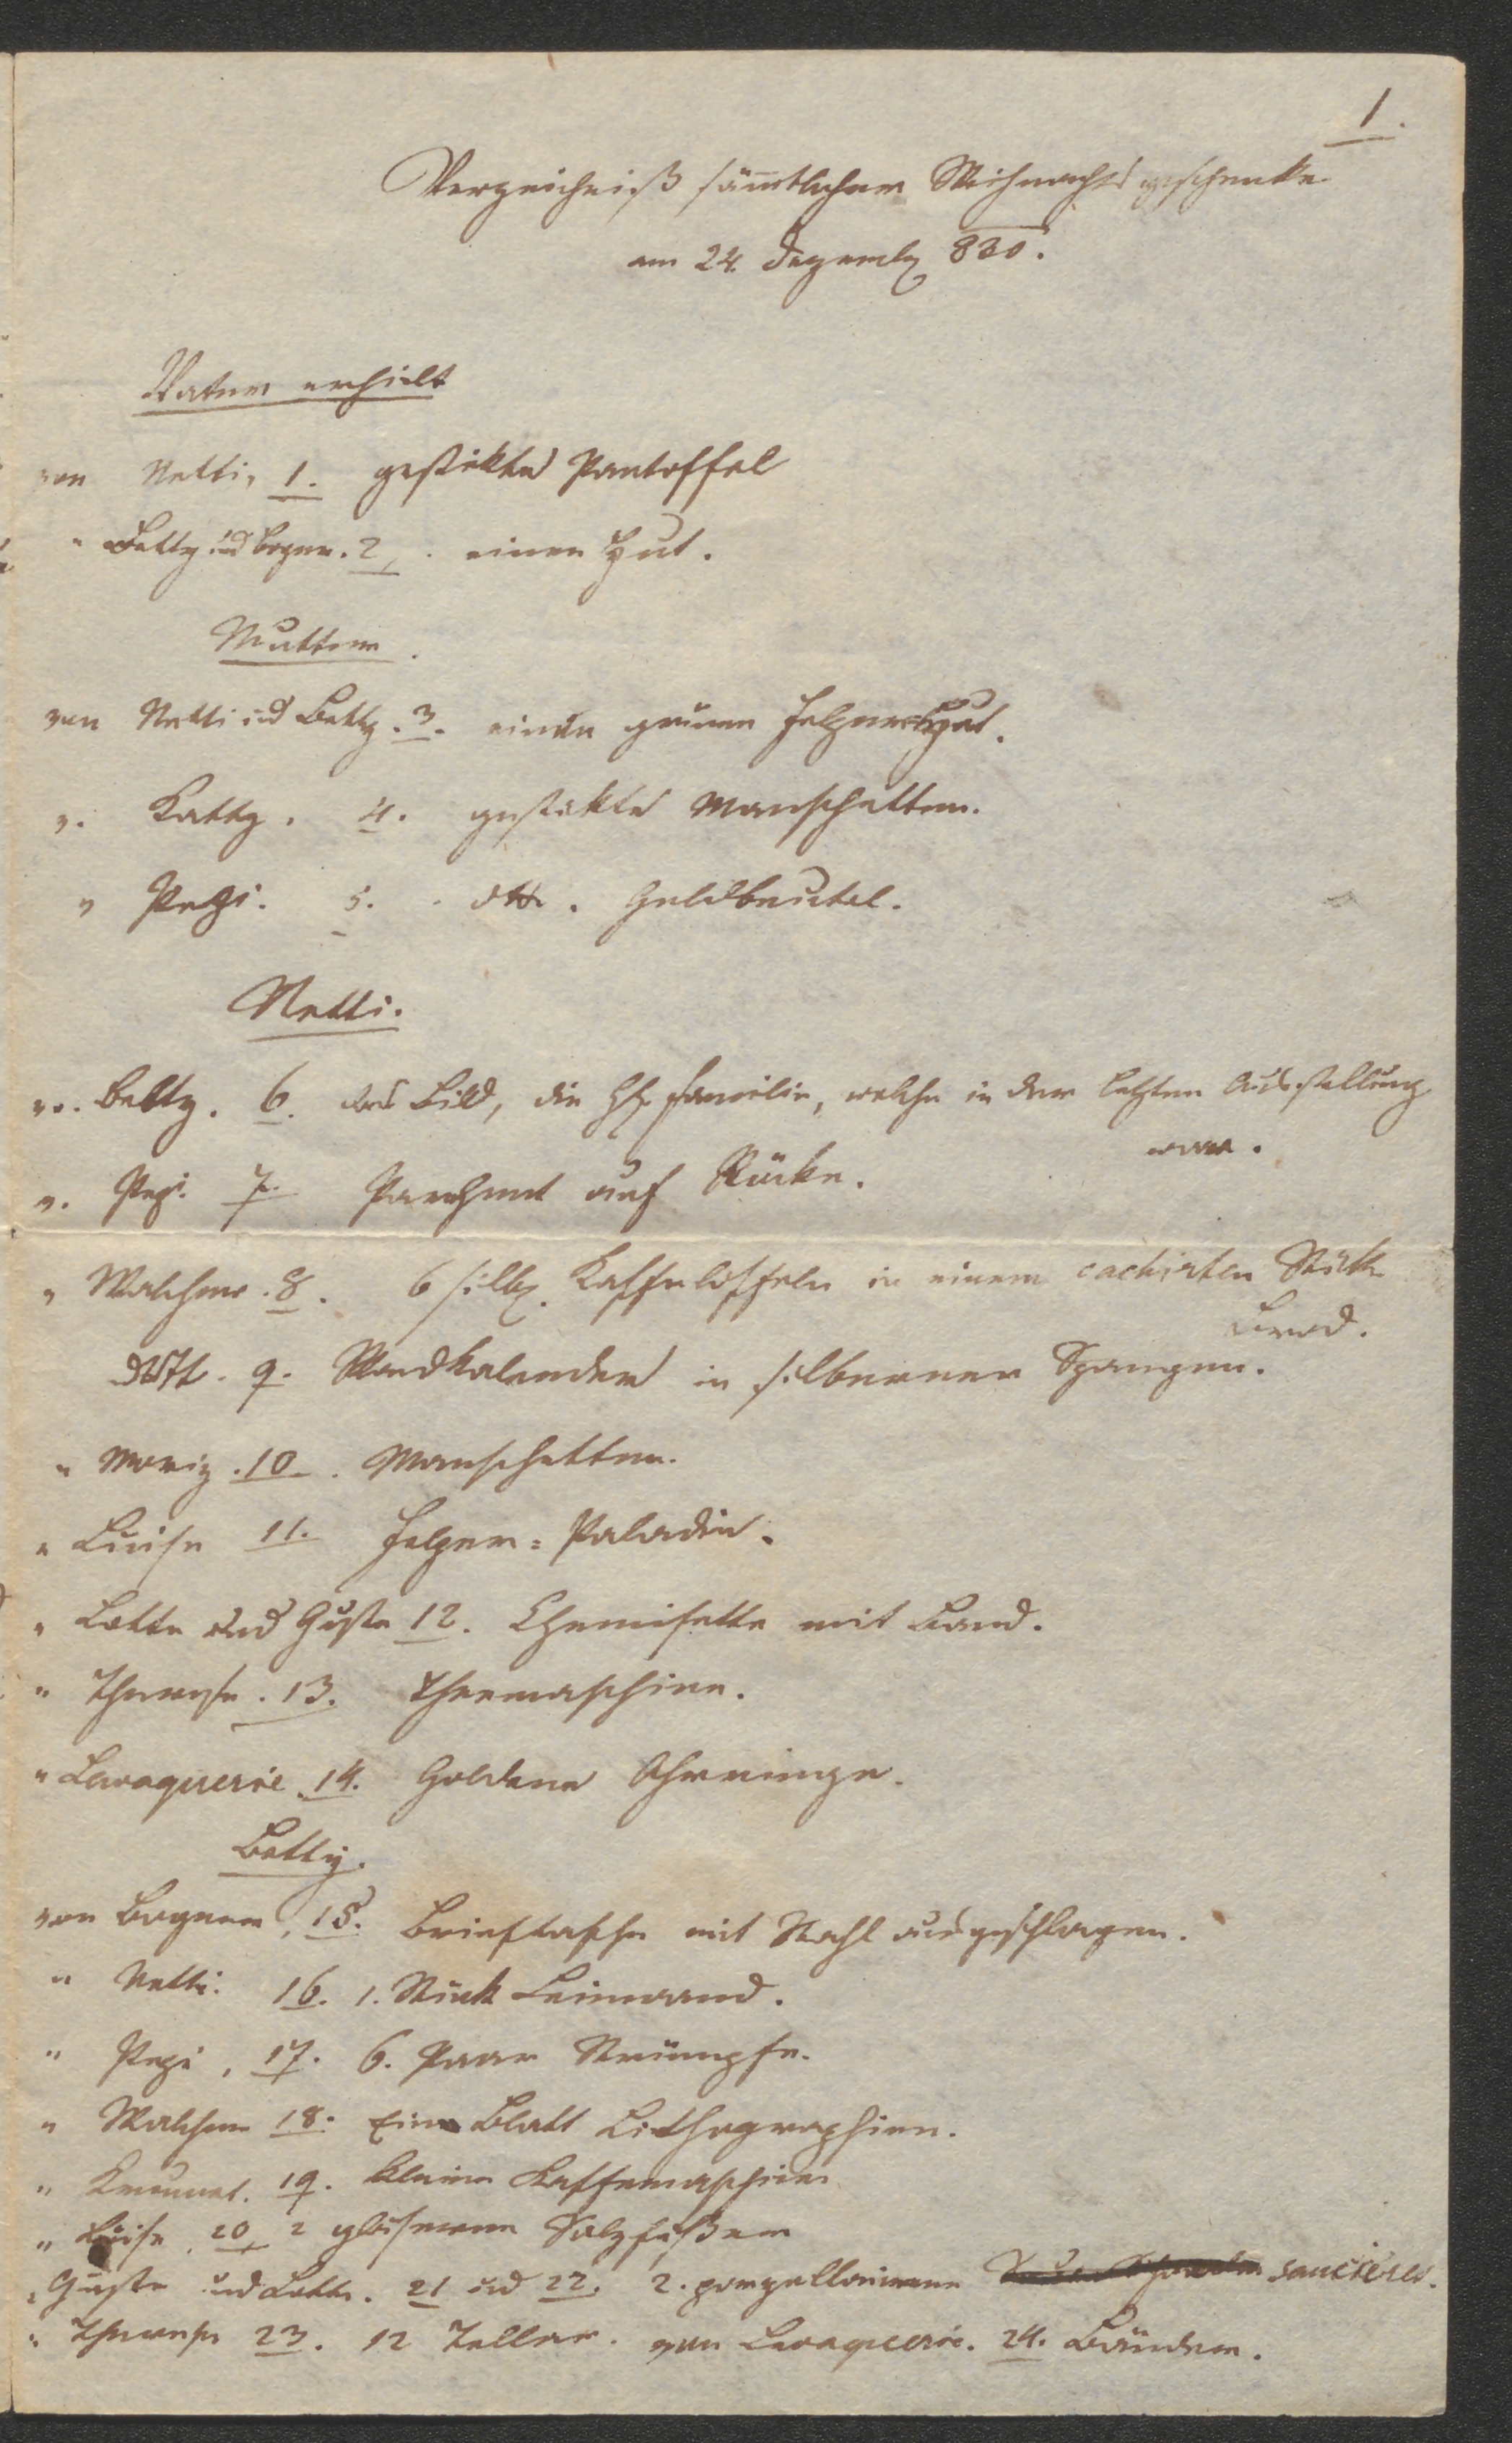 1.
Verzeichniß sämtlicher Weihnachtsgeschenke
am 24. Dezemb 830.
Vater erhielt
von Netti, 1. gestikte Pantoffel
" Betty und Bogner. 2. einen Hut.
Mutter.
von Netti und Betty. 3. einen grünen Felperhut.
v. Betty. 4. gestikte Manschetten.
" Pepi. 5. dtto. Geldbeutel.
Netti.
v. Betty. 6. das Bild, die Hl. Familie, welche in der letzten Ausstellung
war.
v. Pepi. 7. Parchent auf Röcke.
" Walcher. 8. 6 silb. Kaffelöffeln in einem cachirten Stük
Brod.
dtto. 9. Wandkalender in silbernen Spangen.
" Moriz. 10. Manschetten.
" Luise 11. Felper-Paladin.
" Lotte und Guste 12. Chemisette mit Band.
" Therese. 13. Theemaschine.
" Lavaquerie. 14. Goldene Ohrringe.
Betty.
von Bogner, 15. Brieftasche mit Stahl ausgeschlagen.
" Netti. 16. 1. Stück Leinwand.
" Pepi, 17. 6. Paar Strümpfe.
" Walcher 18. Ein Blatt Lithographien.
" 19. kleine Kaffemaschine
" Luise, 20, 2 gläserne Salzfäßer
" Guste und Lotte. 21 und 22. 2. porzellainene saucières.
" Therese 23. 12 Teller. von Lavaquerie. 24. Bänder.